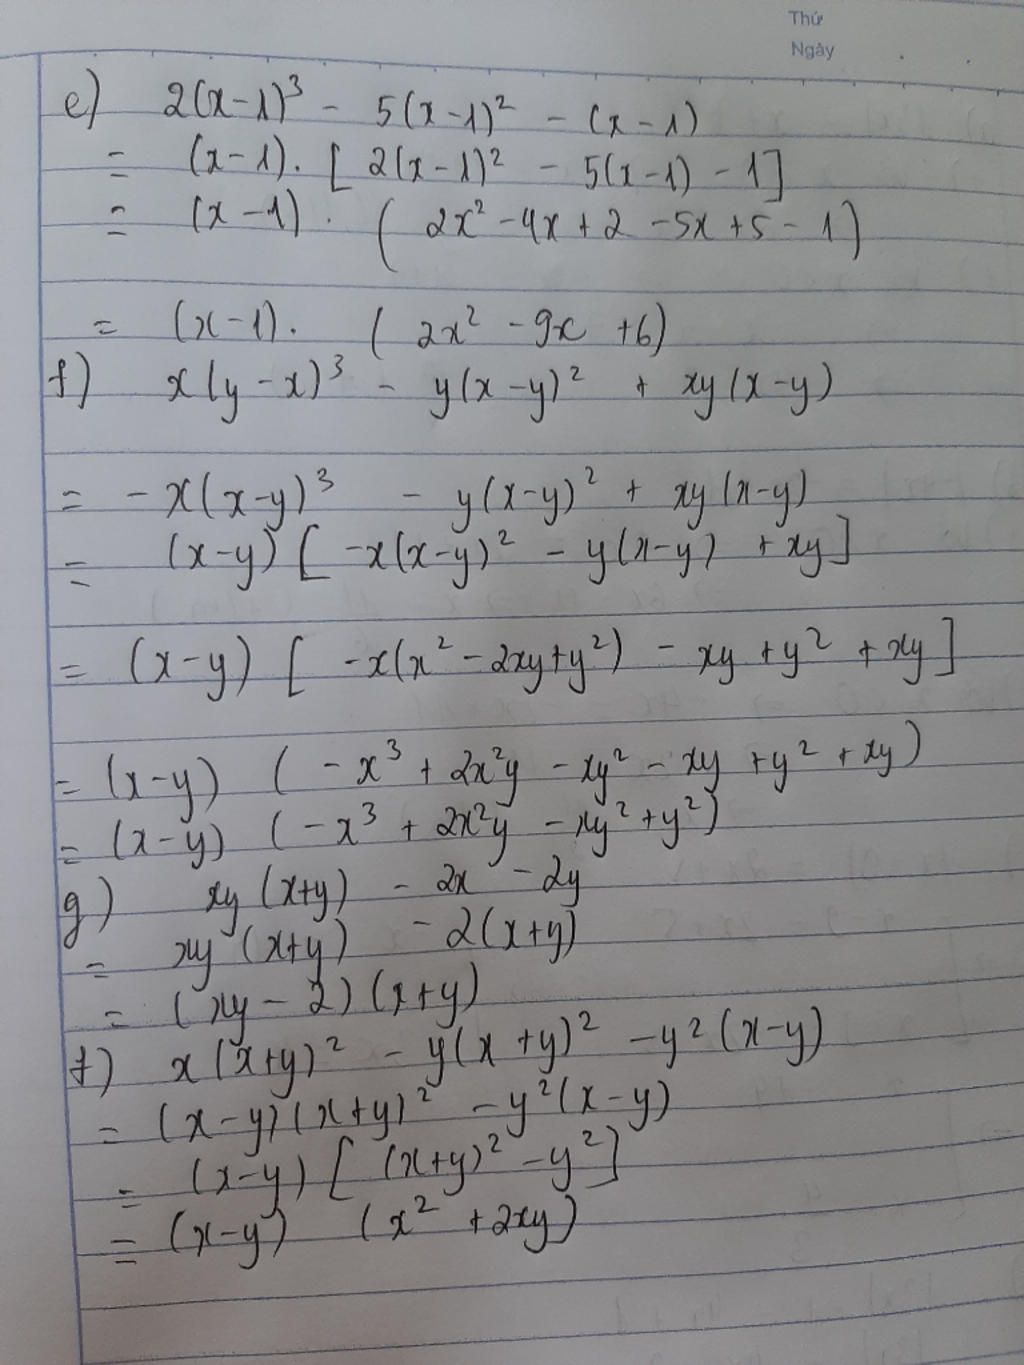 Thứ
Ngày
e) 2(x-1)³ - 5(x-1)² - (x-1)
= (x-1). [2(x-1)² - 5(x-1) - 1]
= (x-1). (2x² - 4x + 2 - 5x + 5 - 1)
= (x-1). (2x² - 9x + 6)
f) x(y-x)³ - y(x-y)² + xy(x-y)
= -x(x-y)³ - y(x-y)² + xy(x-y)
= (x-y) [-x(x-y)² - y(x-y) + xy]
= (x-y) [-x(x² - 2xy + y²) - xy + y² + xy]
= (x-y) (-x³ + 2x²y - xy² - xy + y² + xy)
= (x-y) (-x³ + 2x²y - xy² + y²)
g) xy(x+y) - 2x - 2y
= xy(x+y) - 2(x+y)
= (xy-2)(x+y)
f) x(x+y)² - y(x+y)² - y²(x-y)
= (x-y)(x+y)² - y²(x-y)
= (x-y) [(x+y)² - y²]
= (x-y) (x² + 2xy)